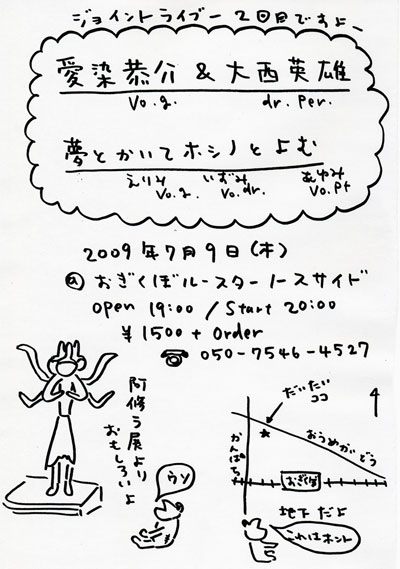 ジョイントライブー 2回目ですよー
愛染恭介 & 大西英雄
Vo.g. dr. per.
夢とかいてホシノとよむ
えりみ いずみ あゆみ
Vo.g. Vo.dr. Vo.Pf
2009年7月9日(木)
@ おぎくぼルースターノースサイド
open 19:00 / Start 20:00
¥1500 + Order
☎ 050-7546-4527
阿修ラ展より
おもしろいよ
ウソ
だいたい
ココ
おうめがどう
かんぱち
おぎくぼ
地下だよ
これはホント